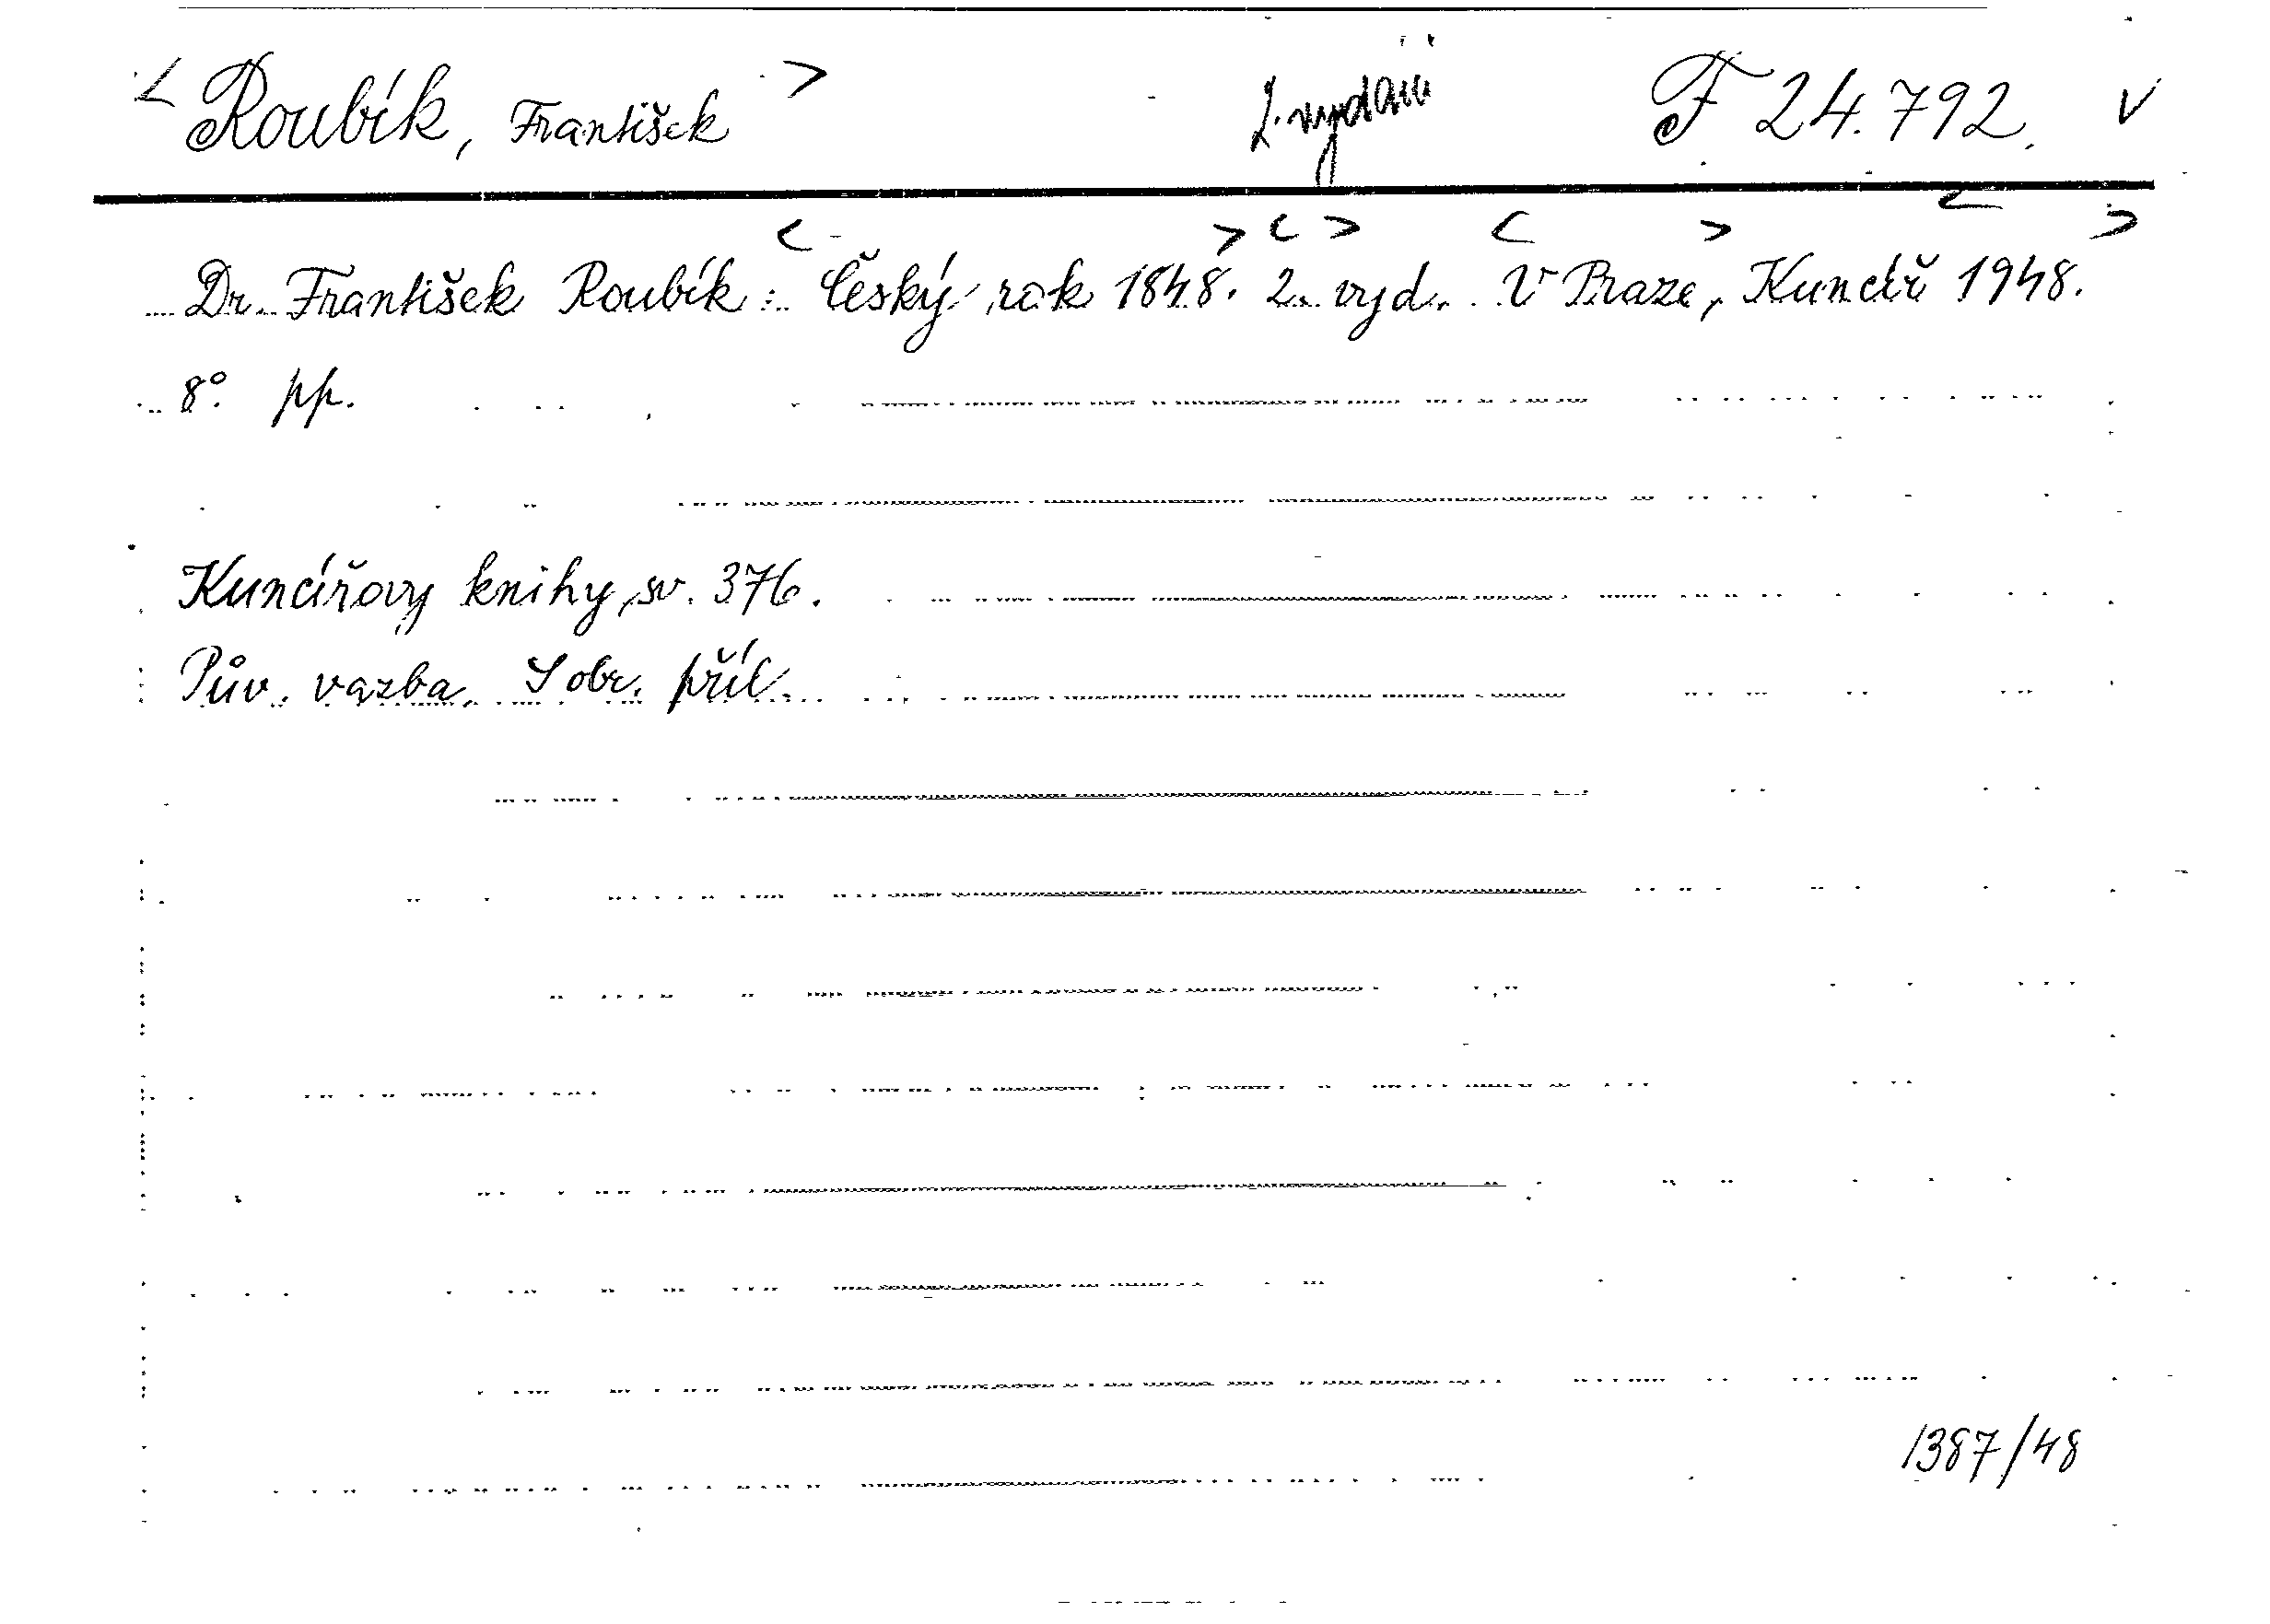 < Roubík, František > 2. vydání F 24.792. v
< > < > < > < >
Dr. František Roubík: Český rok 1848. 2. vyd. V Praze, Kuncíř 1948.
8°. pp.
Kuncířovy knihy, sv. 376.
Pův. vazba. S obr. příl.
1387/48